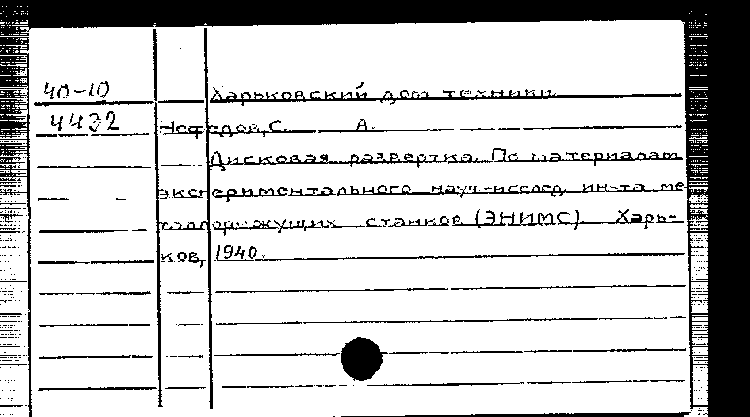 40-10 Харьковский дом техники.
4432 Нефедов, С. А.
Дисковая развертка. По материалам
экспериментального науч.-исслед. ин-та ме
таллорежущих станков (ЭНИМС) Харь-
ков, 1940.